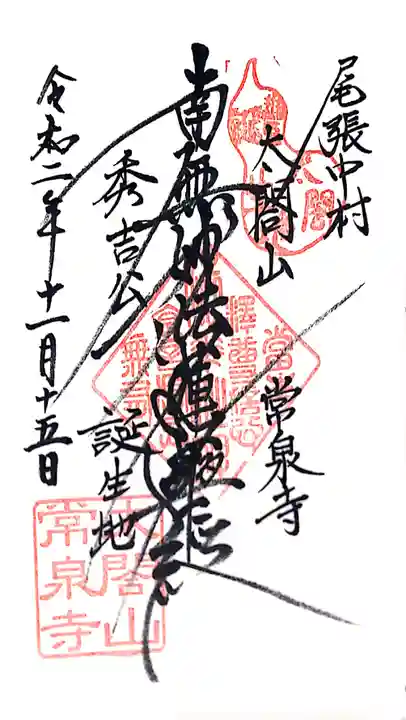 尾張中村
太閤山
常泉寺
南無妙法蓮華経
秀吉公
誕生地
令和二年十一月十五日
太閤山
常泉寺